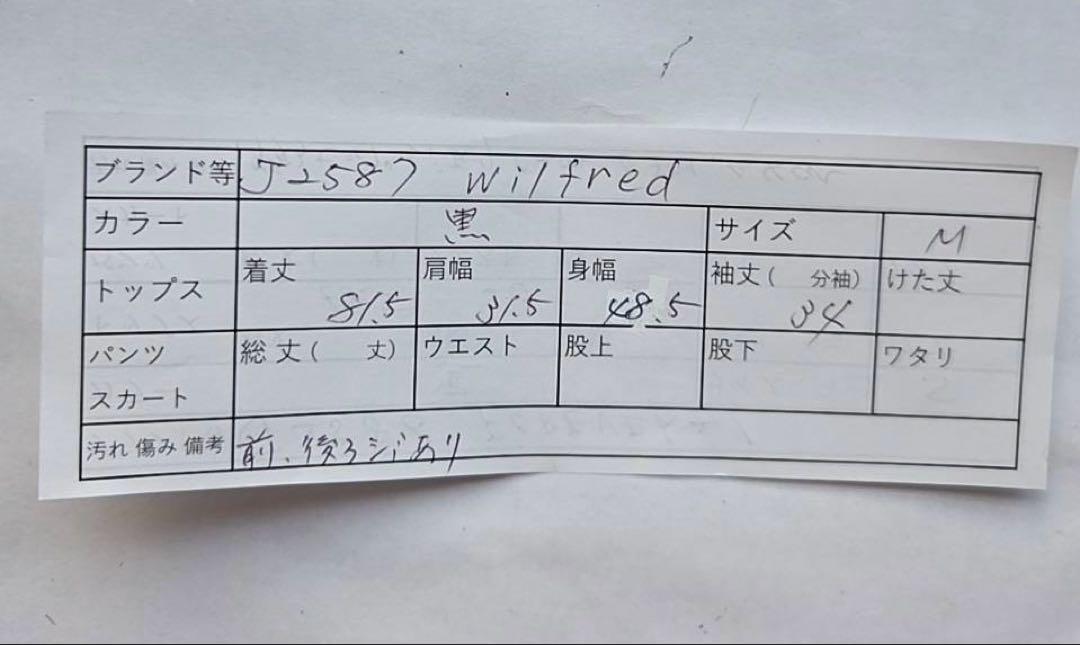 ブランド等 J2587 wilfred
カラー 黒 サイズ M
トップス 着丈 81.5 肩幅 31.5 身幅 48.5 袖丈( 分袖) 34 けた丈
パンツ スカート 総丈( 丈) ウエスト 股上 股下 ワタリ
汚れ 傷み 備考 前、後ろシミあり